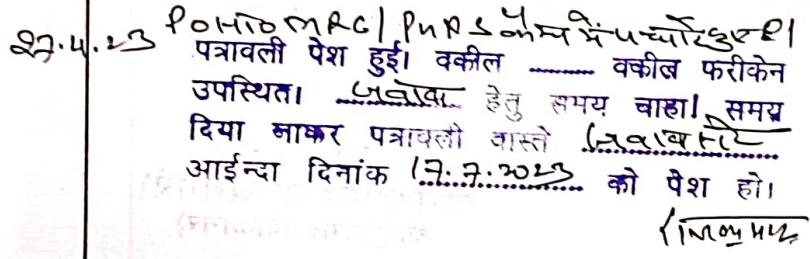 27.4.23 P.O. MRG / PNRS कैम्प में पधारे हुए है।
पत्रावली पेश हुई। वकील ........ वकील फरीकेन
उपस्थित। जवाब हेतु समय चाहा। समय
दिया जाकर पत्रावली वास्ते जवाब
आईन्दा दिनांक 17.7.2023 को पेश हो।